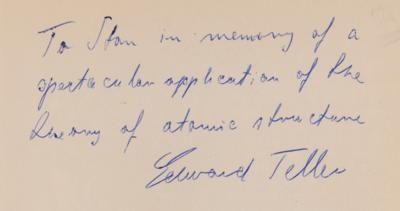 To Stan in memory of a
spectacular application of the
theory of atomic structure
Edward Teller